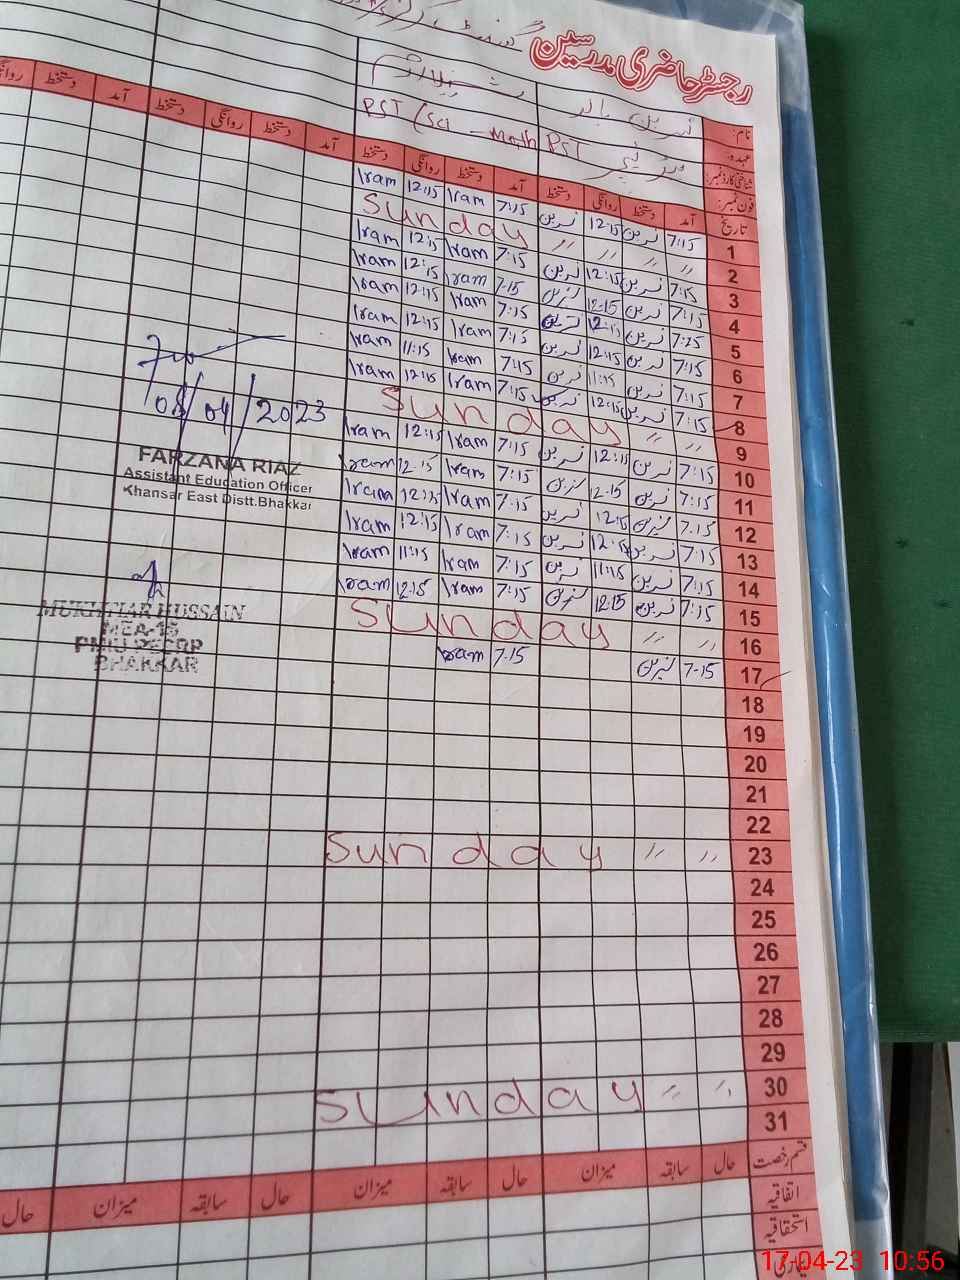 رجسٹر حاضری مدرسین
نام:
عہدہ:
PST (Sci - Math PST
شناختی کارڈ نمبر:
فون نمبر:
تاریخ آمد دستخط روانگی دستخط آمد دستخط روانگی دستخط آمد دستخط روانگی دستخط آمد دستخط روانگی
1 7:15 نسرین 12:15 نسرین 7:15 Iram 12:15 Iram
2 〃 〃 〃 〃 Sunday
3 7:15 نسرین 12:15 نسرین 7:15 Iram 12:15 Iram
4 7:15 نسرین 12:15 نسرین 7:15 Iram 12:15 Iram
5 7:15 نسرین 12:15 نسرین 7:15 Iram 12:15 Iram
6 7:15 نسرین 12:15 نسرین 7:15 Iram 12:15 Iram
7 7:15 نسرین 11:15 نسرین 7:15 Iram 11:15 Iram
8 7:15 نسرین 12:15 نسرین 7:15 Iram 12:15 Iram
9 〃 〃 Sunday
10 7:15 نسرین 12:15 نسرین 7:15 Iram 12:15 Iram
11 7:15 نسرین 12:15 نسرین 7:15 Iram 12:15 Iram
12 7:15 نسرین 12:15 نسرین 7:15 Iram 12:15 Iram
13 7:15 نسرین 12:15 نسرین 7:15 Iram 12:15 Iram
14 7:15 نسرین 11:15 نسرین 7:15 Iram 11:15 Iram
15 7:15 نسرین 12:15 نسرین 7:15 Iram 12:15 Iram
16 〃 〃 Sunday
17 7-15 نسرین 7-15 Iram
18
19
20
21
22
23 〃 〃 Sunday
24
25
26
27
28
29
30 〃 〃 Sunday
31
قسم رخصت حال سابقہ میزان حال سابقہ میزان حال سابقہ میزان حال
اتفاقیہ
استحقاقیہ
08/04/2023
FARZANA RIAZ
Assistant Education Officer
Khansar East Distt.Bhakkar
MUKHTIAR HUSSAIN
MEA-15
PMIU PESRP
BHAKKAR
17-04-23 10:56